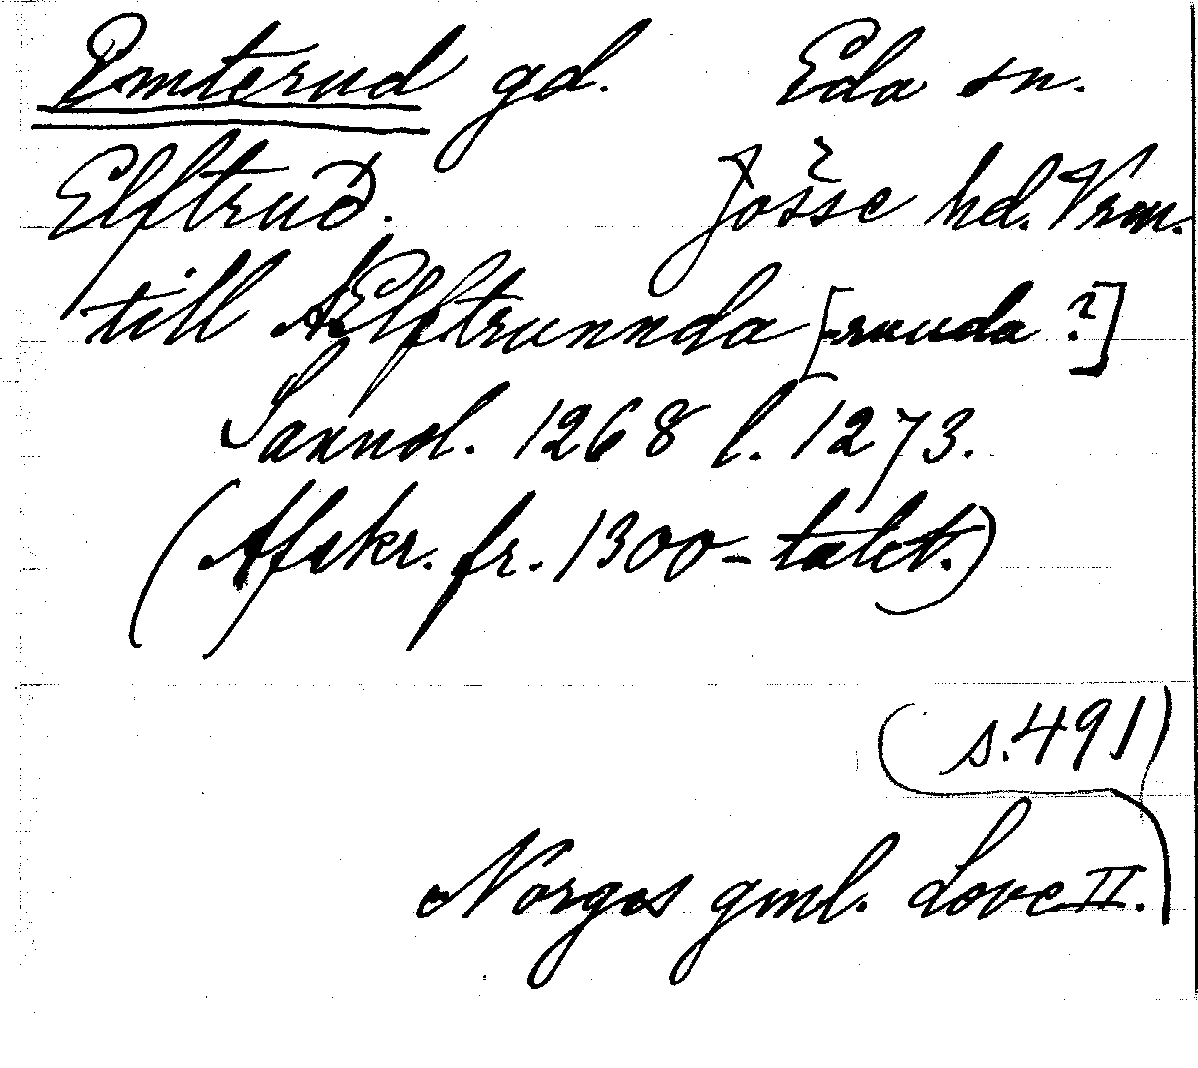 Emterud gd. Eda sn.
Elftrud. Jösse hd. Vrm.
till AElftrunnda [-ruuda ?]
Sannol. 1268 l. 1273.
(Afskr. fr. 1300-talet.)
s. 491
Norges gml. Love II.